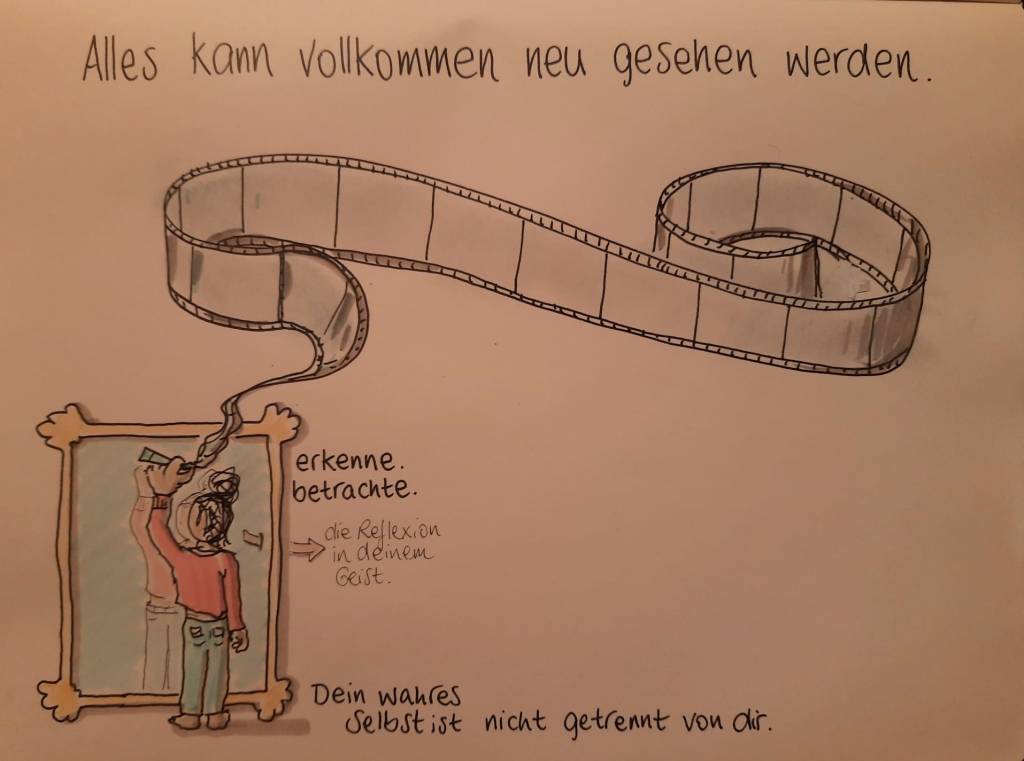 Alles kann vollkommen neu gesehen werden.
erkenne.
betrachte.
die Reflexion
in deinem
Geist.
Dein wahres
Selbst ist nicht getrennt von dir.